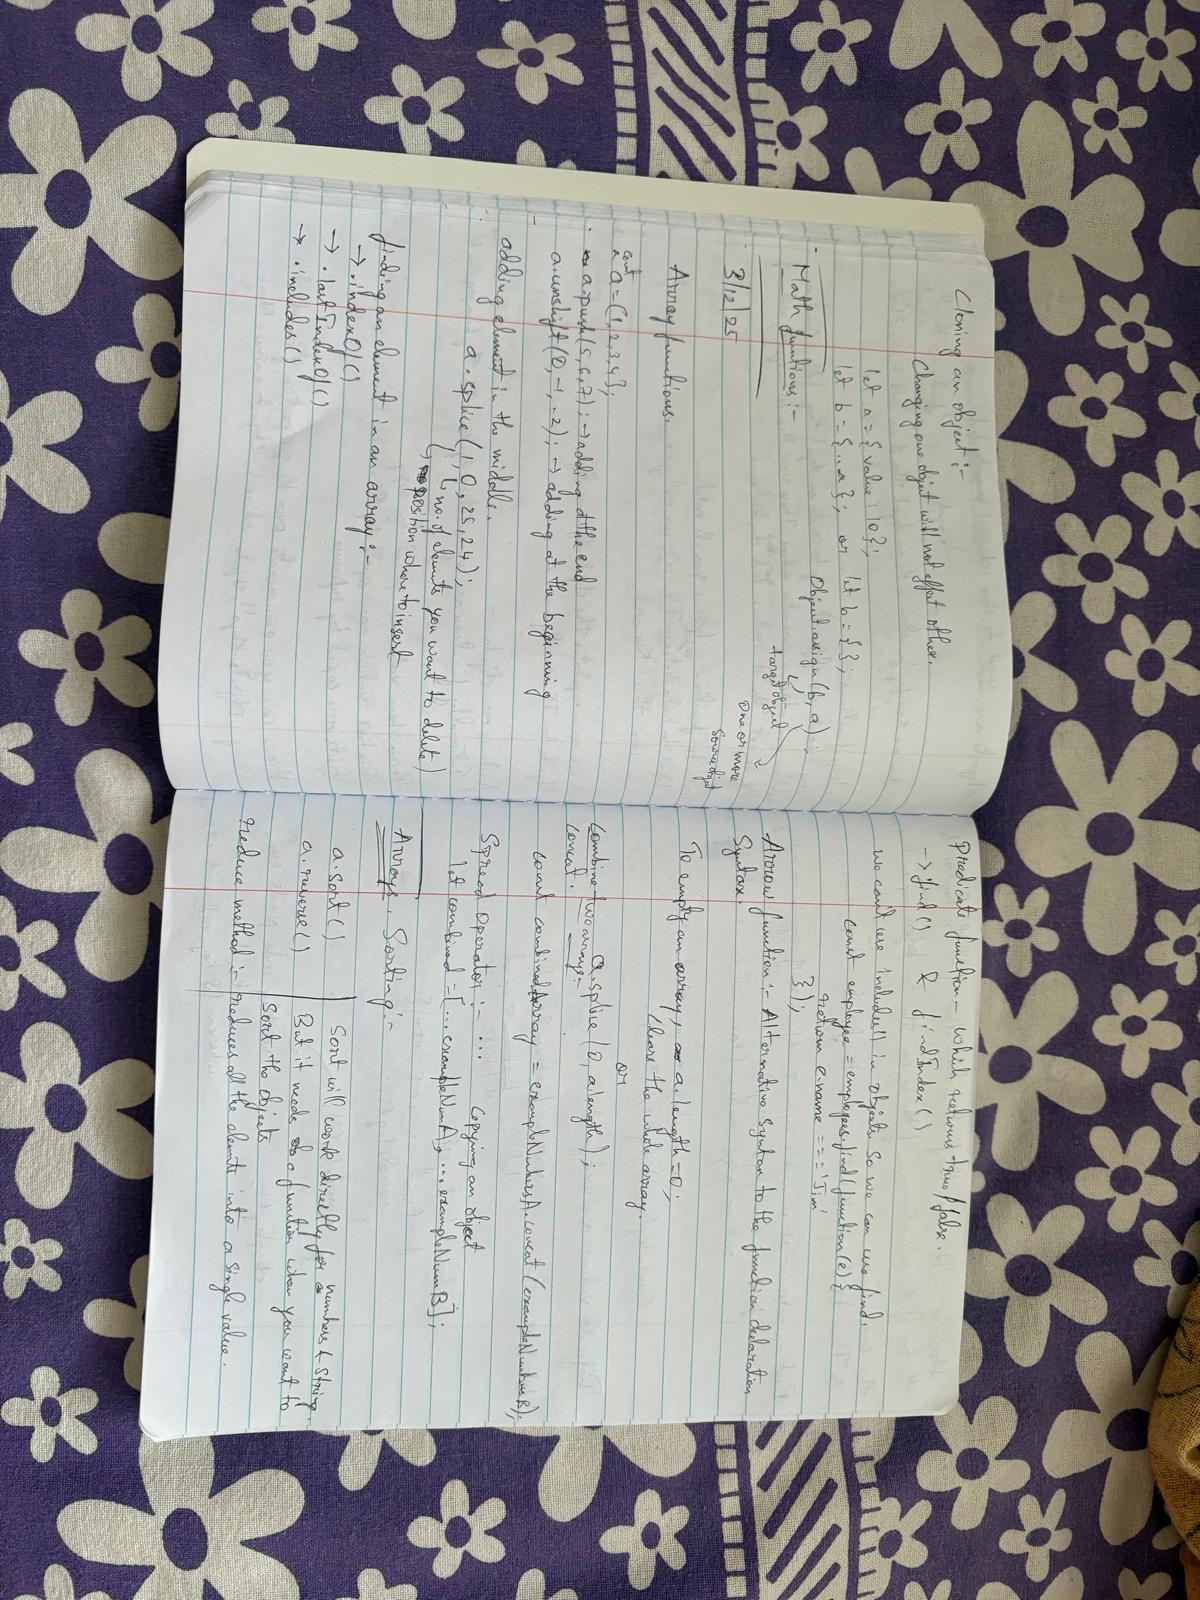 Cloning an object :-
Changing one object will not effect other.
let a = { value : 10 };
let b = { ...a }; or let b = { };
Object.assign(b, a);
target object
One or more
Source object
Math functions :-
3/12/25
Array functions.
const
a = [1,2,3,4];
a.push(5,6,7); → adding at the end
a.unshift(0,-1,-2); → adding at the beginning
adding element in the middle.
a.splice(1,0,25,24);
no. of elements you want to delete)
position where to insert
finding an element in an array :-
→ .indexOf()
→ .lastIndexOf()
→ .includes()
Predicate function - which returns true/false.
→ find() & findIndex()
we can't use includes() in objects. So we can use find.
const employee = employees.find(function(e){
return e.name === 'Jim'
});
Arrow function :- Alternative Syntax to the function declaration
Syntax.
To empty an array, a.length=0;
clears the whole array.
or
a.splice(0, a.length);
Combine two arrays :-
concat.
const combinedArray = exampleNumbersA.concat(exampleNumbersB);
Spread Operator :- ... Copying an object
let combined = [...exampleNumA, ...exampleNumB];
Arrays. Sorting :-
a.sort()
a.reverse()
Sort will work directly for numbers & String.
But it needs a function when you want to
sort the objects
reduce method :- reduces all the elements into a single value.